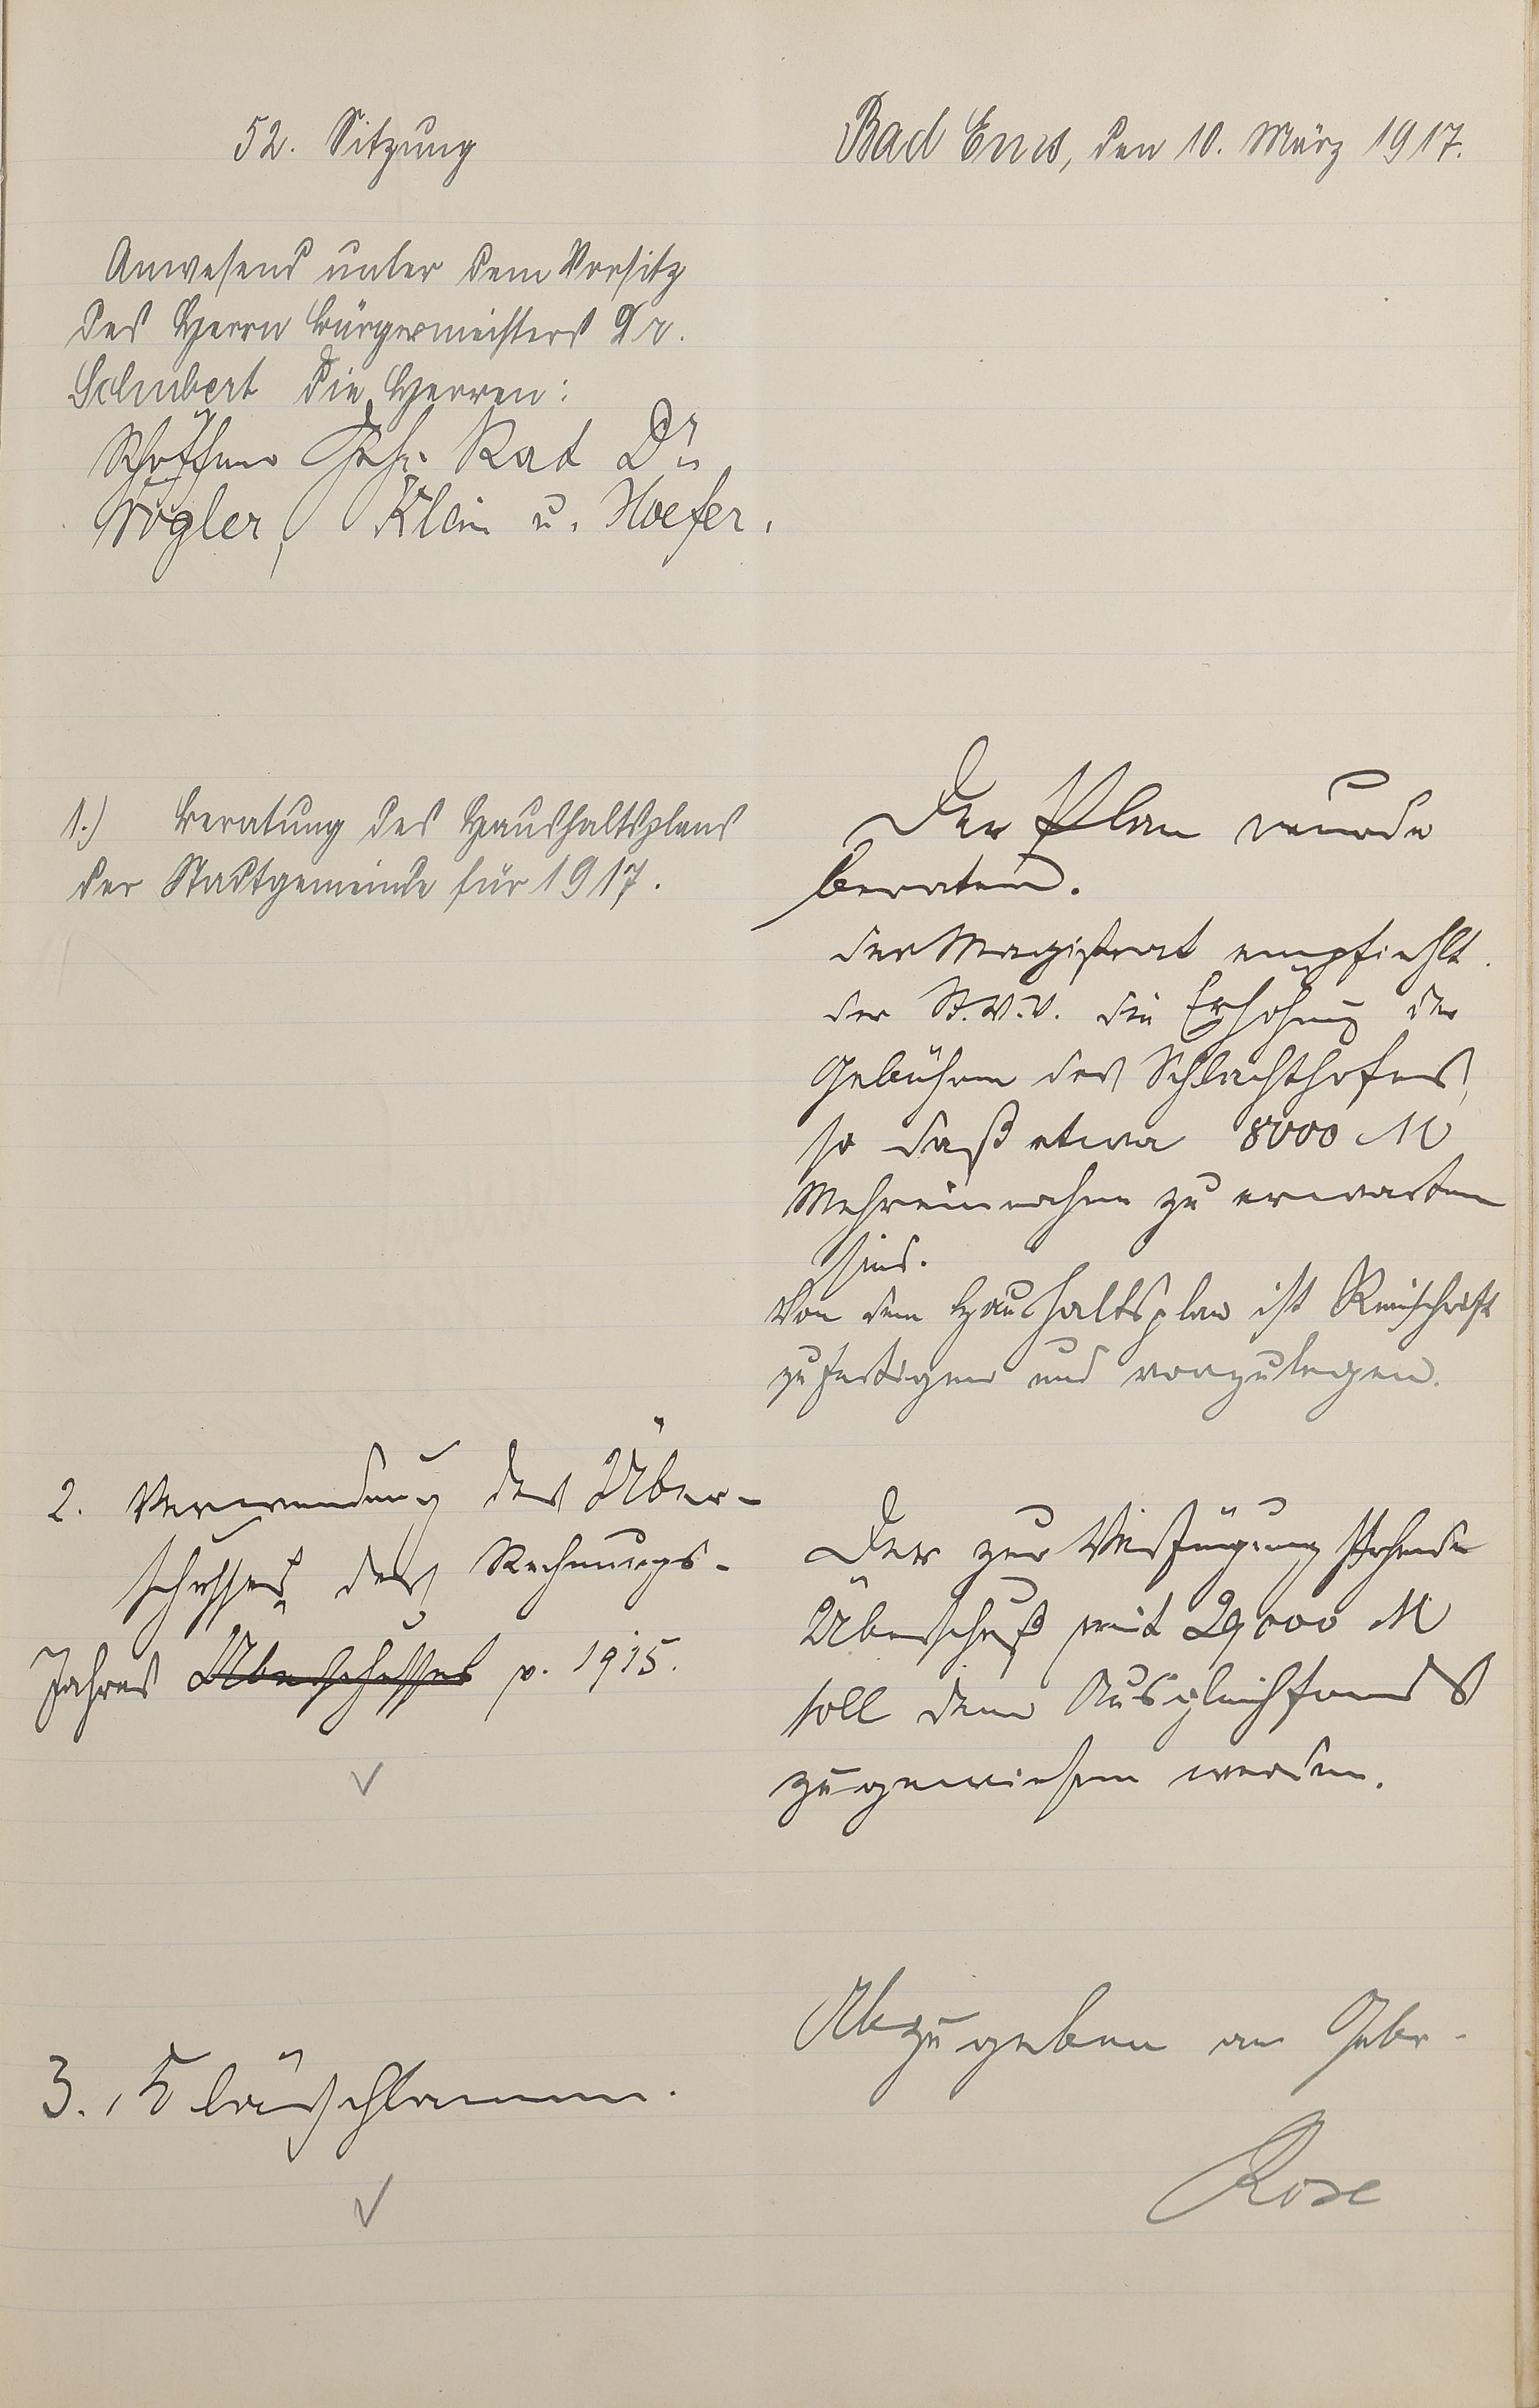 52. Sitzung
Bad Ems, den 10. März 1917.
Anwesend unter dem Vorsitz
des Herrn Bürgermeisters Dr.
Schubert die Herren:
Schöffen Geh. Rat Dr.
Vogler, Klein u. Hoefer.
1.) Beratung des Haushaltsplans
der Stadtgemeinde für 1917.
Der Plan wurde
beraten.
Der Magistrat empfiehlt
der St.V.V. die Erhöhung der
Gebühren des Schlachthofes,
so daß etwa 8000 M
Mehreinnahme zu erwarten
sind.
Von dem Haushaltsplan ist Reinschrift
zu fertigen und vorzulegen.
2. Verwendung des Über-
schusses des Rechnungs-
Jahres Überschusses p. 1915.
Der zur Verfügung stehende
Überschuß mit 29000 M
soll dem Ausgleichfonds
zugewiesen werden.
3. Klärschlamm.
Abzugeben an Gebr.
Rose